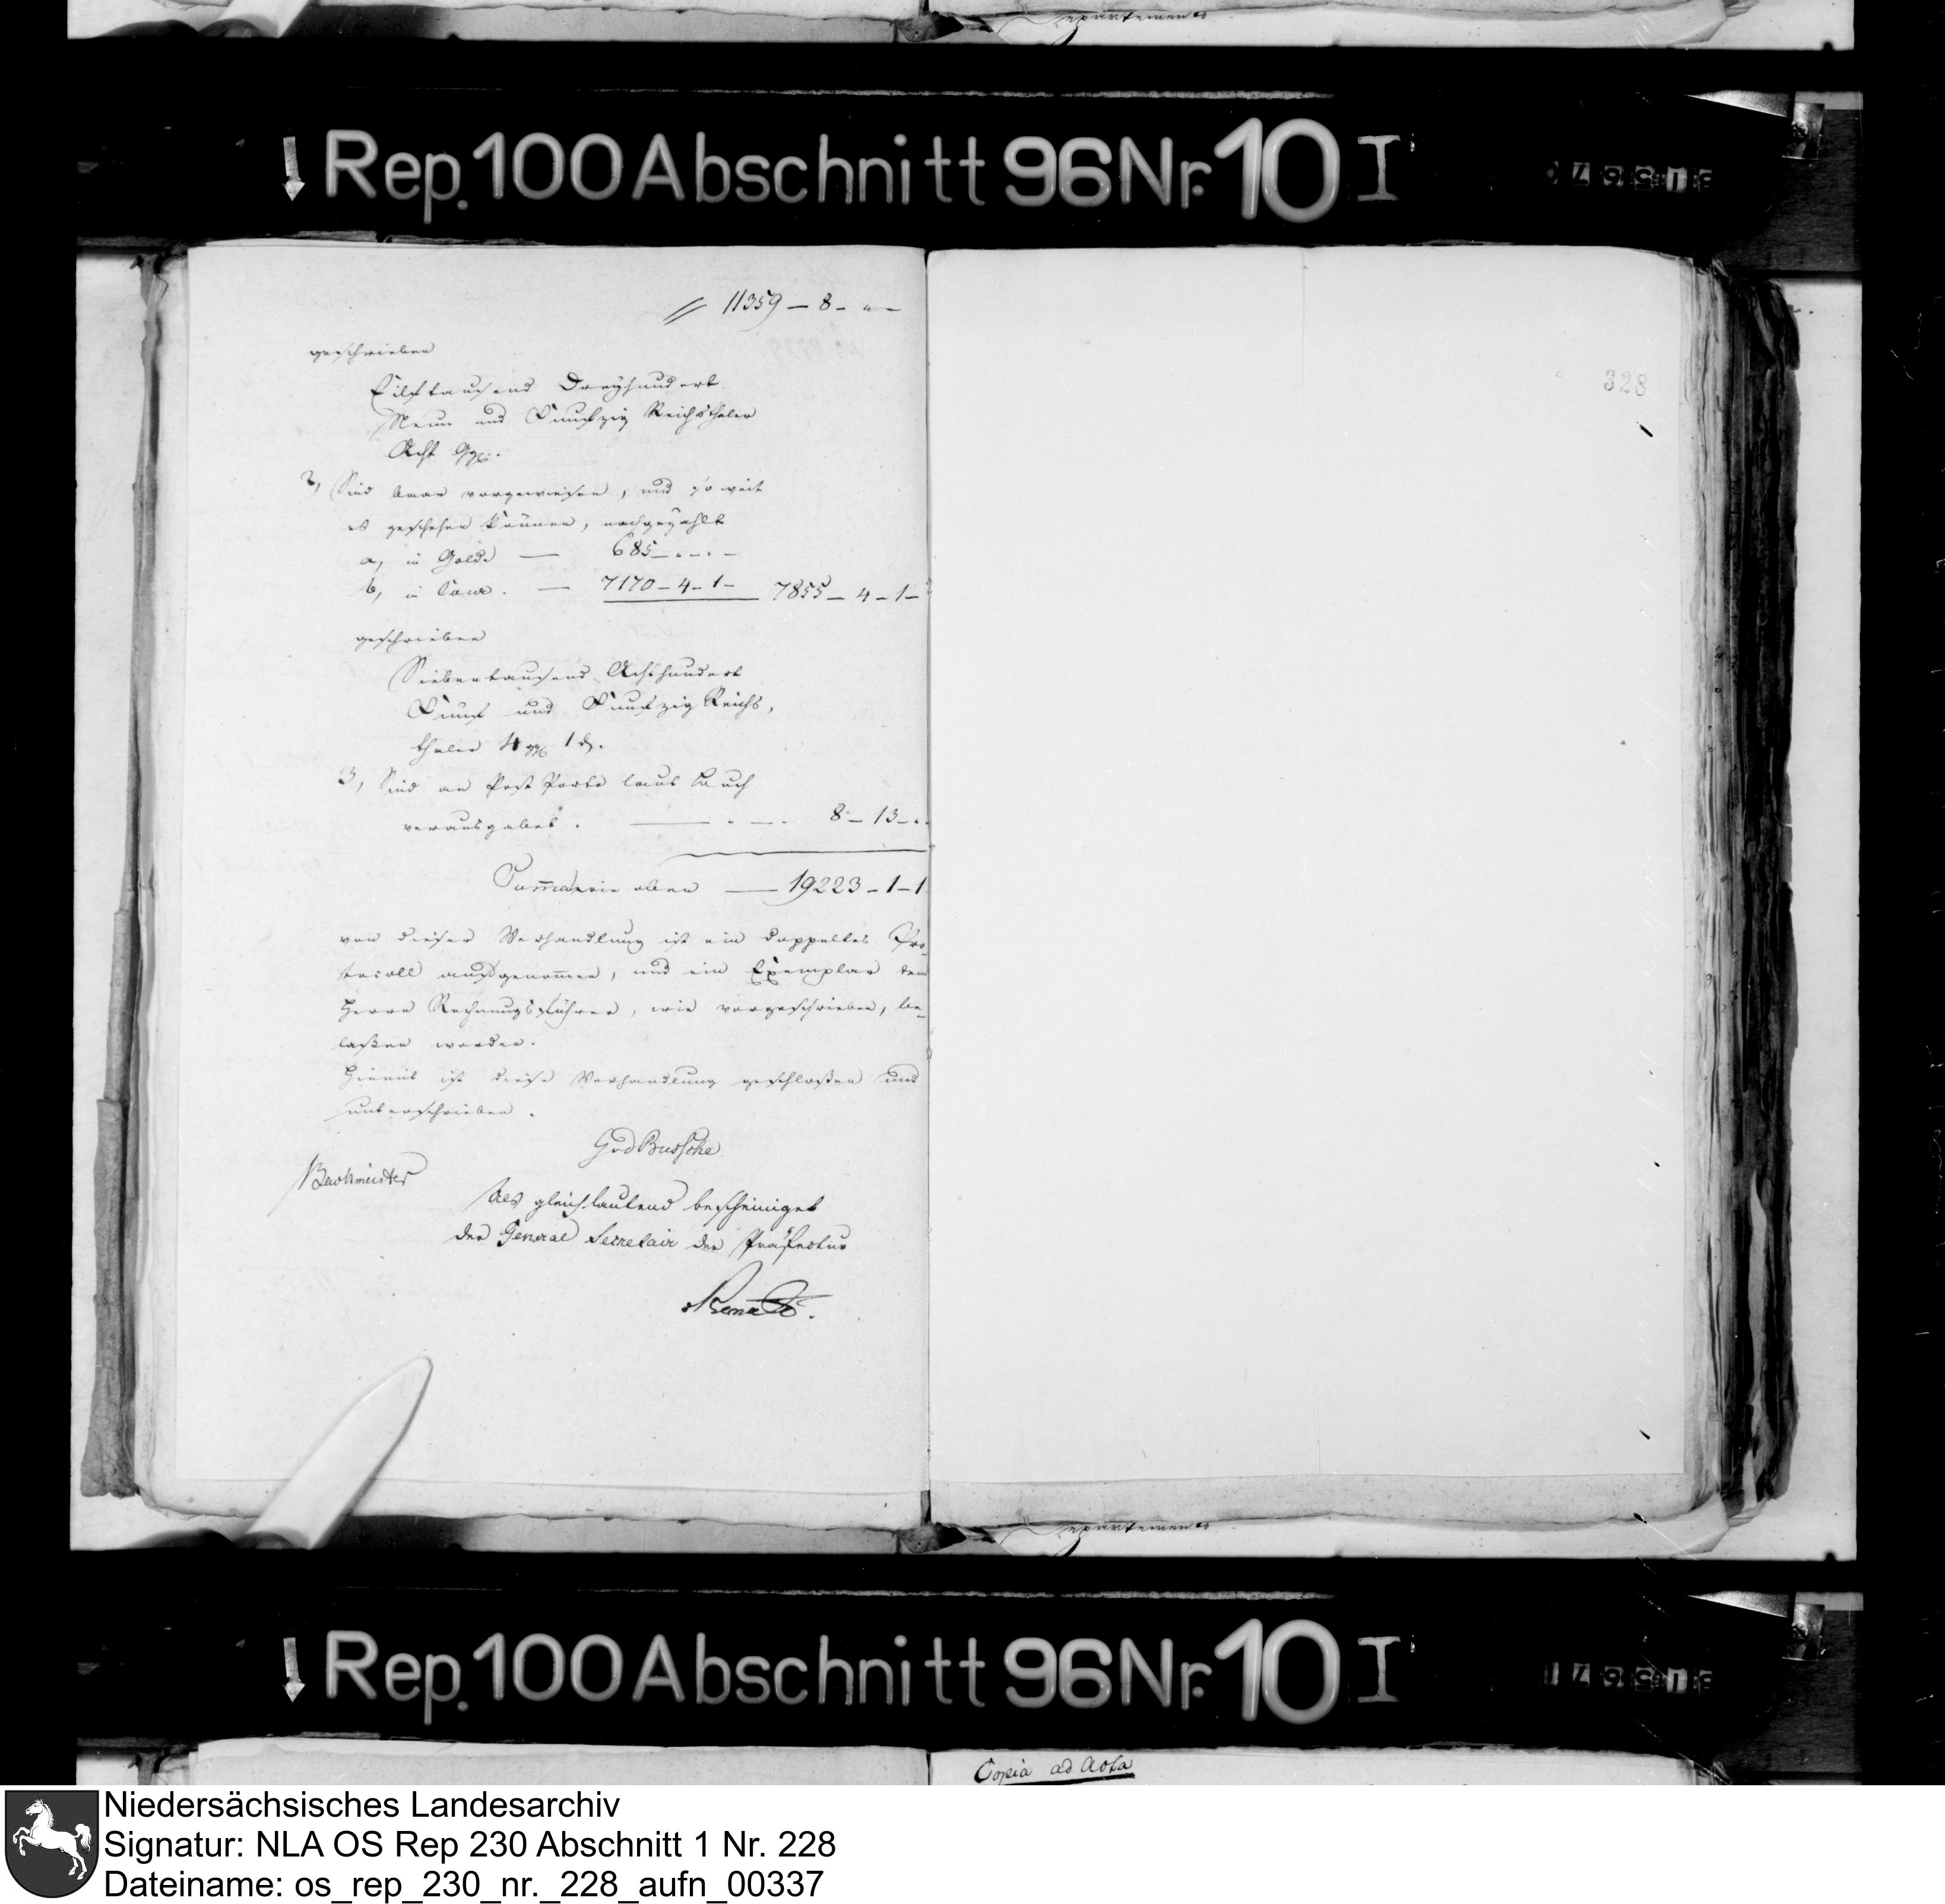 epartements
Rep. 100 Abschnitt 96 Nr. 10 I
11359 – 8 – „ –
geschrieben
Eilftausend Dreyhundert
Neun und Funfzig Reichsthaler
Acht Ggr.
2, Sind baar vorgewiesen, und so weit
es geschehen können, nachgezählt
a, in Golde — 685 – „ – „ –
b, in Cour. — 7170 – 4 – 1 – 7855 – 4 – 1 –
geschrieben
Siebentausend Achthundert
Fünf und Funfzig Reichs,
thaler 4 ggr 1 d.
3, Sind an Post Porto laut Buch
verausgabet. — „ — „ 8 – 13 – „
Summa wie oben — 19223 – 1 – 1
von dieser Verhandlung ist ein doppeltes Pro-
tocoll aufgenommen, und ein Exemplar dem
Herrn Rechnungsführer, wie vorgeschrieben, be-
laßen worden.
Hiemit ist diese Verhandlung geschloßen und
unterschrieben.
GvdBussche
Backmeister
Als gleichlautend bescheiniget
der General Secretair der Präfectur
328
epartements
Rep. 100 Abschnitt 96 Nr. 10 I
Copia ad Acta
Niedersächsisches Landesarchiv
Signatur: NLA OS Rep 230 Abschnitt 1 Nr. 228
Dateiname: os_rep_230_nr._228_aufn_00337